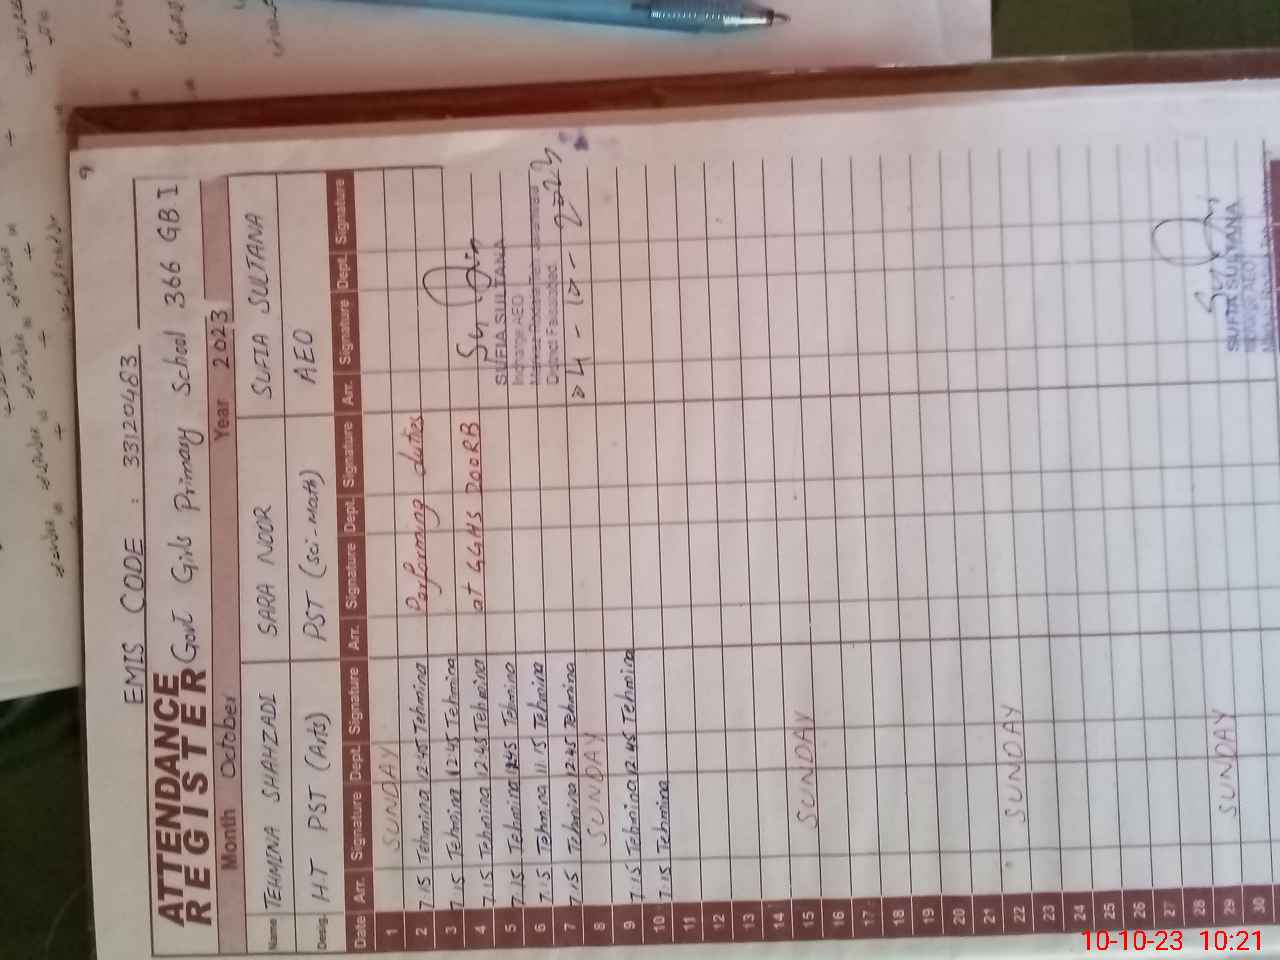 9
EMIS CODE : 33120463
ATTENDANCE
REGISTER Govt Girls Primary School 366 GB I
Month October Year 2023
Name TEHMINA SHAHZADI SARA NOOR SUFIA SULTANA
Desig. H.T PST (Arts) PST (Sci-math) AEO
Date Arr. Signature Dept. Signature Arr. Signature Dept. Signature Arr. Signature Dept. Signature
1 SUNDAY
2 7.15 Tehmina 12.45 Tehmina Performing duties
3 7.15 Tehmina 12.45 Tehmina
4 7.15 Tehmina 12.45 Tehmina at GGHS 200RB
5 7.15 Tehmina Tehmina SUFIA SULTANA
Incharge AEO
6 7.15 Tehmina 11.15 Tehmina
District Faisalabad.
7 7.15 Tehmina 12.45 Tehmina 04-10-2023
8 SUNDAY
9 7.15 Tehmina 12.45 Tehmina
10 7.15 Tehmina
11
12
13
14
15 SUNDAY
16
17
18
19
20
21
22 SUNDAY
23
24
25
26
27
28
29 SUNDAY SUFIA SULTANA
30
10-10-23 10:21